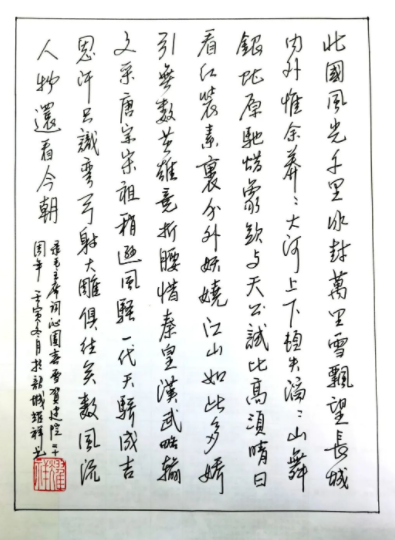 北國風光千里冰封萬里雪飄望長城
内外惟余莽〻大河上下頓失滔〻山舞
銀蛇原馳蜡象欲与天公試比高須晴日
看红裝素裹分外妖嬈江山如此多嬌
引無數英雄竞折腰惜秦皇漢武略輸
文采唐宗宋祖稍遜風騷一代天驕成吉
思汗只識彎弓射大雕俱往矣數風流
人物還看今朝
錄毛主席詞沁園春雪賀建院二十
周年壬寅冬月於龍城